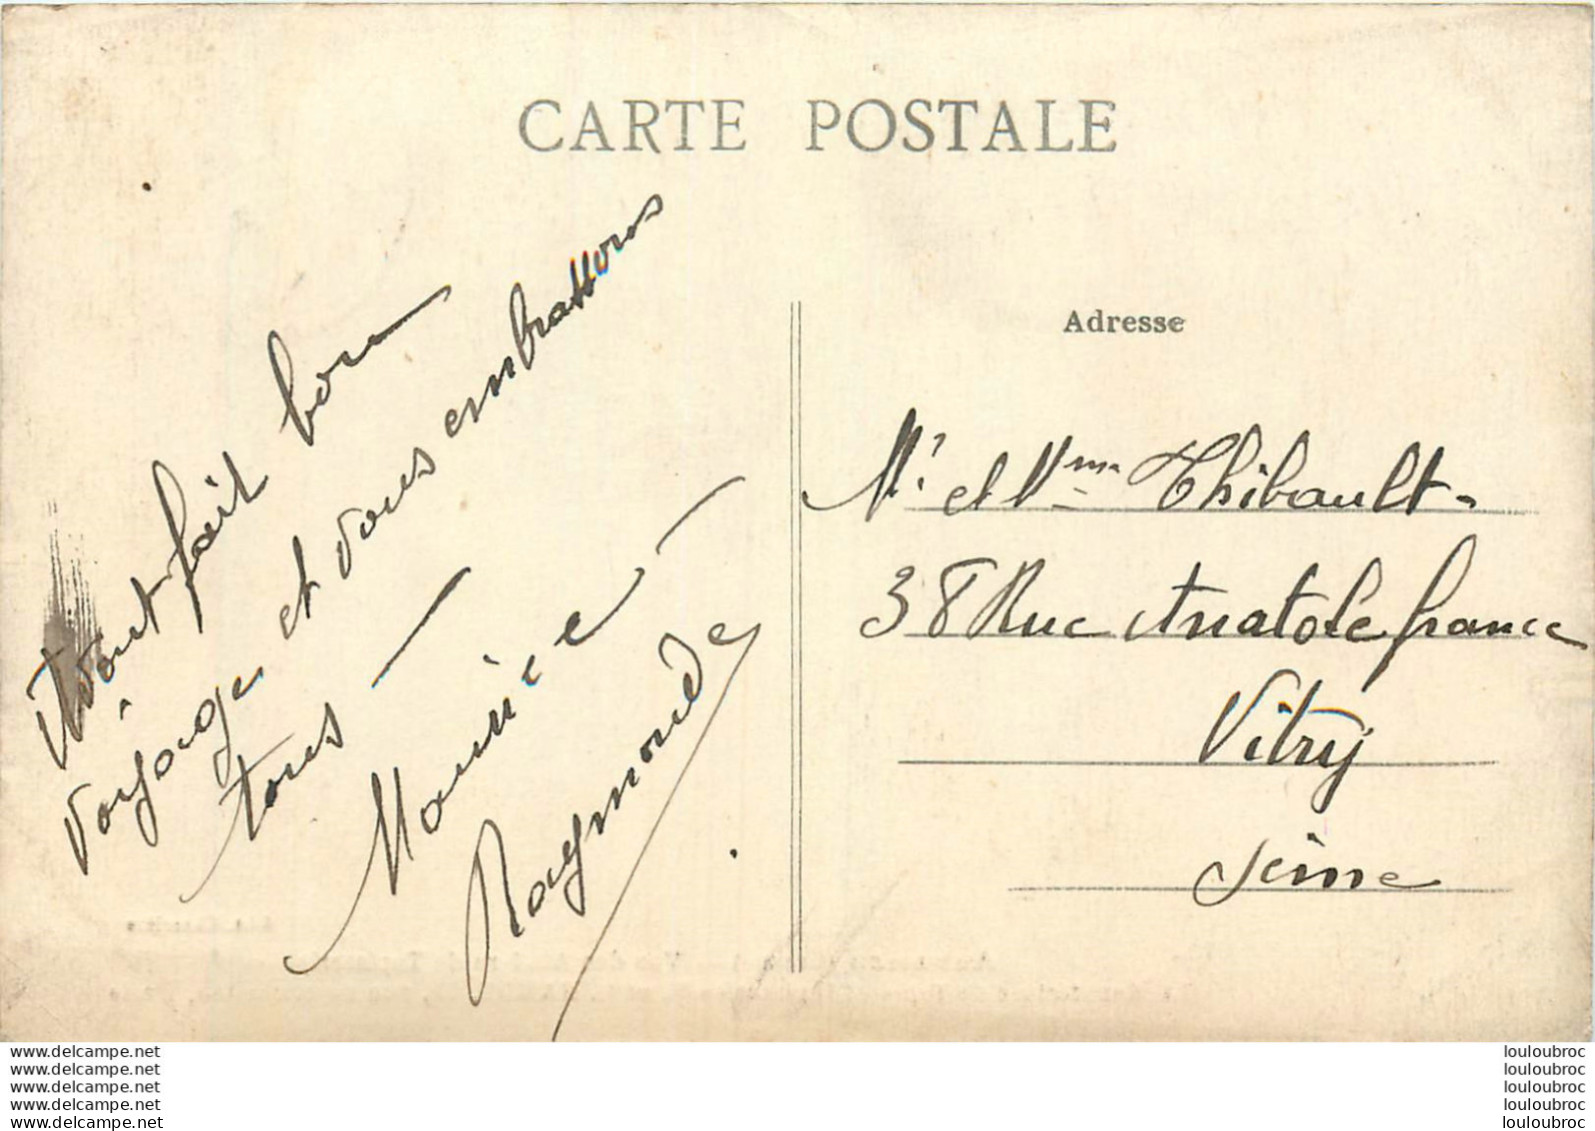 CARTE POSTALE
Avont fait bon
voyage et vous embrassons
tous —
Maurice
Raymonde
Adresse
Mr et Mme Thibault
38 Rue Anatole france
Vitry
Seine
www.delcampe.net
www.delcampe.net
www.delcampe.net
www.delcampe.net
www.delcampe.net
louloubroc
louloubroc
louloubroc
louloubroc
louloubroc